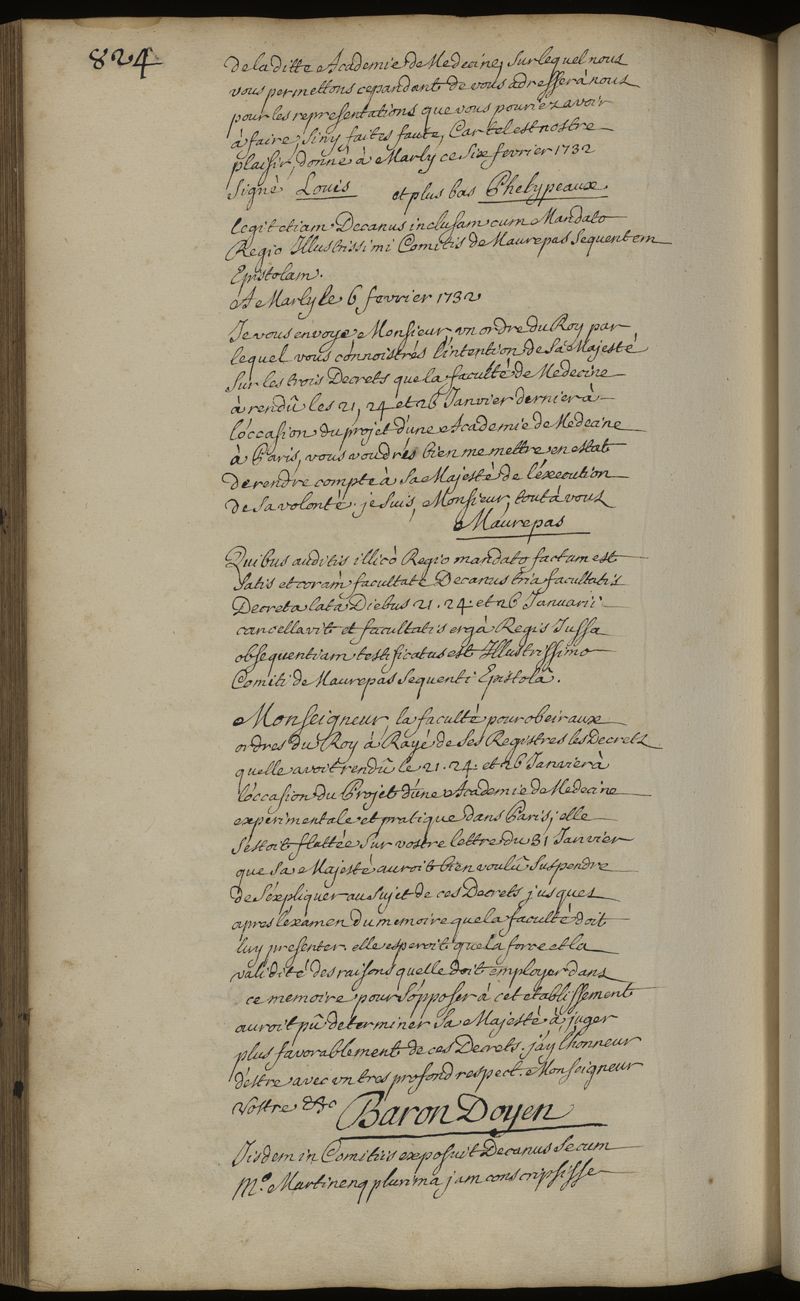 824
de la ditte Academie de Medecine, sur lequel nous
vous permettons cependant de vous adresser à nous
pour les representations que vous pouriez avoir
à faire, si ny faites faute, Car tel est nostre
plaisir, donné à Marly ce six fevrier 1732
Signé Louis et plus bas Phelypeaux
legit etiam Decanus inclusam cum Mandato
Regio Illustrissimi Comitis de Maurepas sequentem
Epistolam.
A Marly le 6 fevrier 1732
Je vous envoye Monsieur un ordre du Roy par
lequel vous connoistrés l'intention de Sa Majesté
sur les trois Decrets que la faculté de Medecine
à rendû les 21, 24 et 26 Janvier dernier à
l'occasion du projet d'une Academie de Medecine
à Paris, vous voudrés bien me mettre en estat
de rendre compte à Sa Majesté de l'éxecution
de Sa volonté. je suis, Monsieur, tout à vous
Maurepas
Quibus auditis illicò Regio mandato factum est
satis et coràm facultate Decanus tria facultatis
Decreta lata Diebus 21. 24. et 26 Januarii
cancellavit et facultatis ergà Regis Jussa
obsequentiam testificatus est Illustrissimo
Comiti de Maurepas sequenti Epistolâ.
Monseigneur, la faculté pour obeir aux
ordres du Roy à Rayé de ses Registres les Decrets
quelle avoit rendû le 21. 24. et 26 Janvier à
l'occasion du Projet d'une Academie de Medecine
experimentale et pratique dans Paris; elle
s'estoit flattée sur vostre lettre du 31 Janvier
que Sa Majesté auroit bien voulû suspendre
de s'éxpliquer au sujet de ces Decrets jusques
apres l'éxamen du memoire que la faculté doit
luy presenter. elle esperoit que la force et la
validité des raisons quelle doit employer dans
ce memoire pour s'opposer à cet etablissement
auroit pû determiner Sa Majesté à juger
plus favorablement de ces Decrets. j'ay l'honneur
d'éstre avec un tres profond respect. Monseigneur
Vostre &c Baron Doyen
Iisdem in Comitiis exposuit Decanus se cum
M.º Martinenq plurima jam conscripsisse